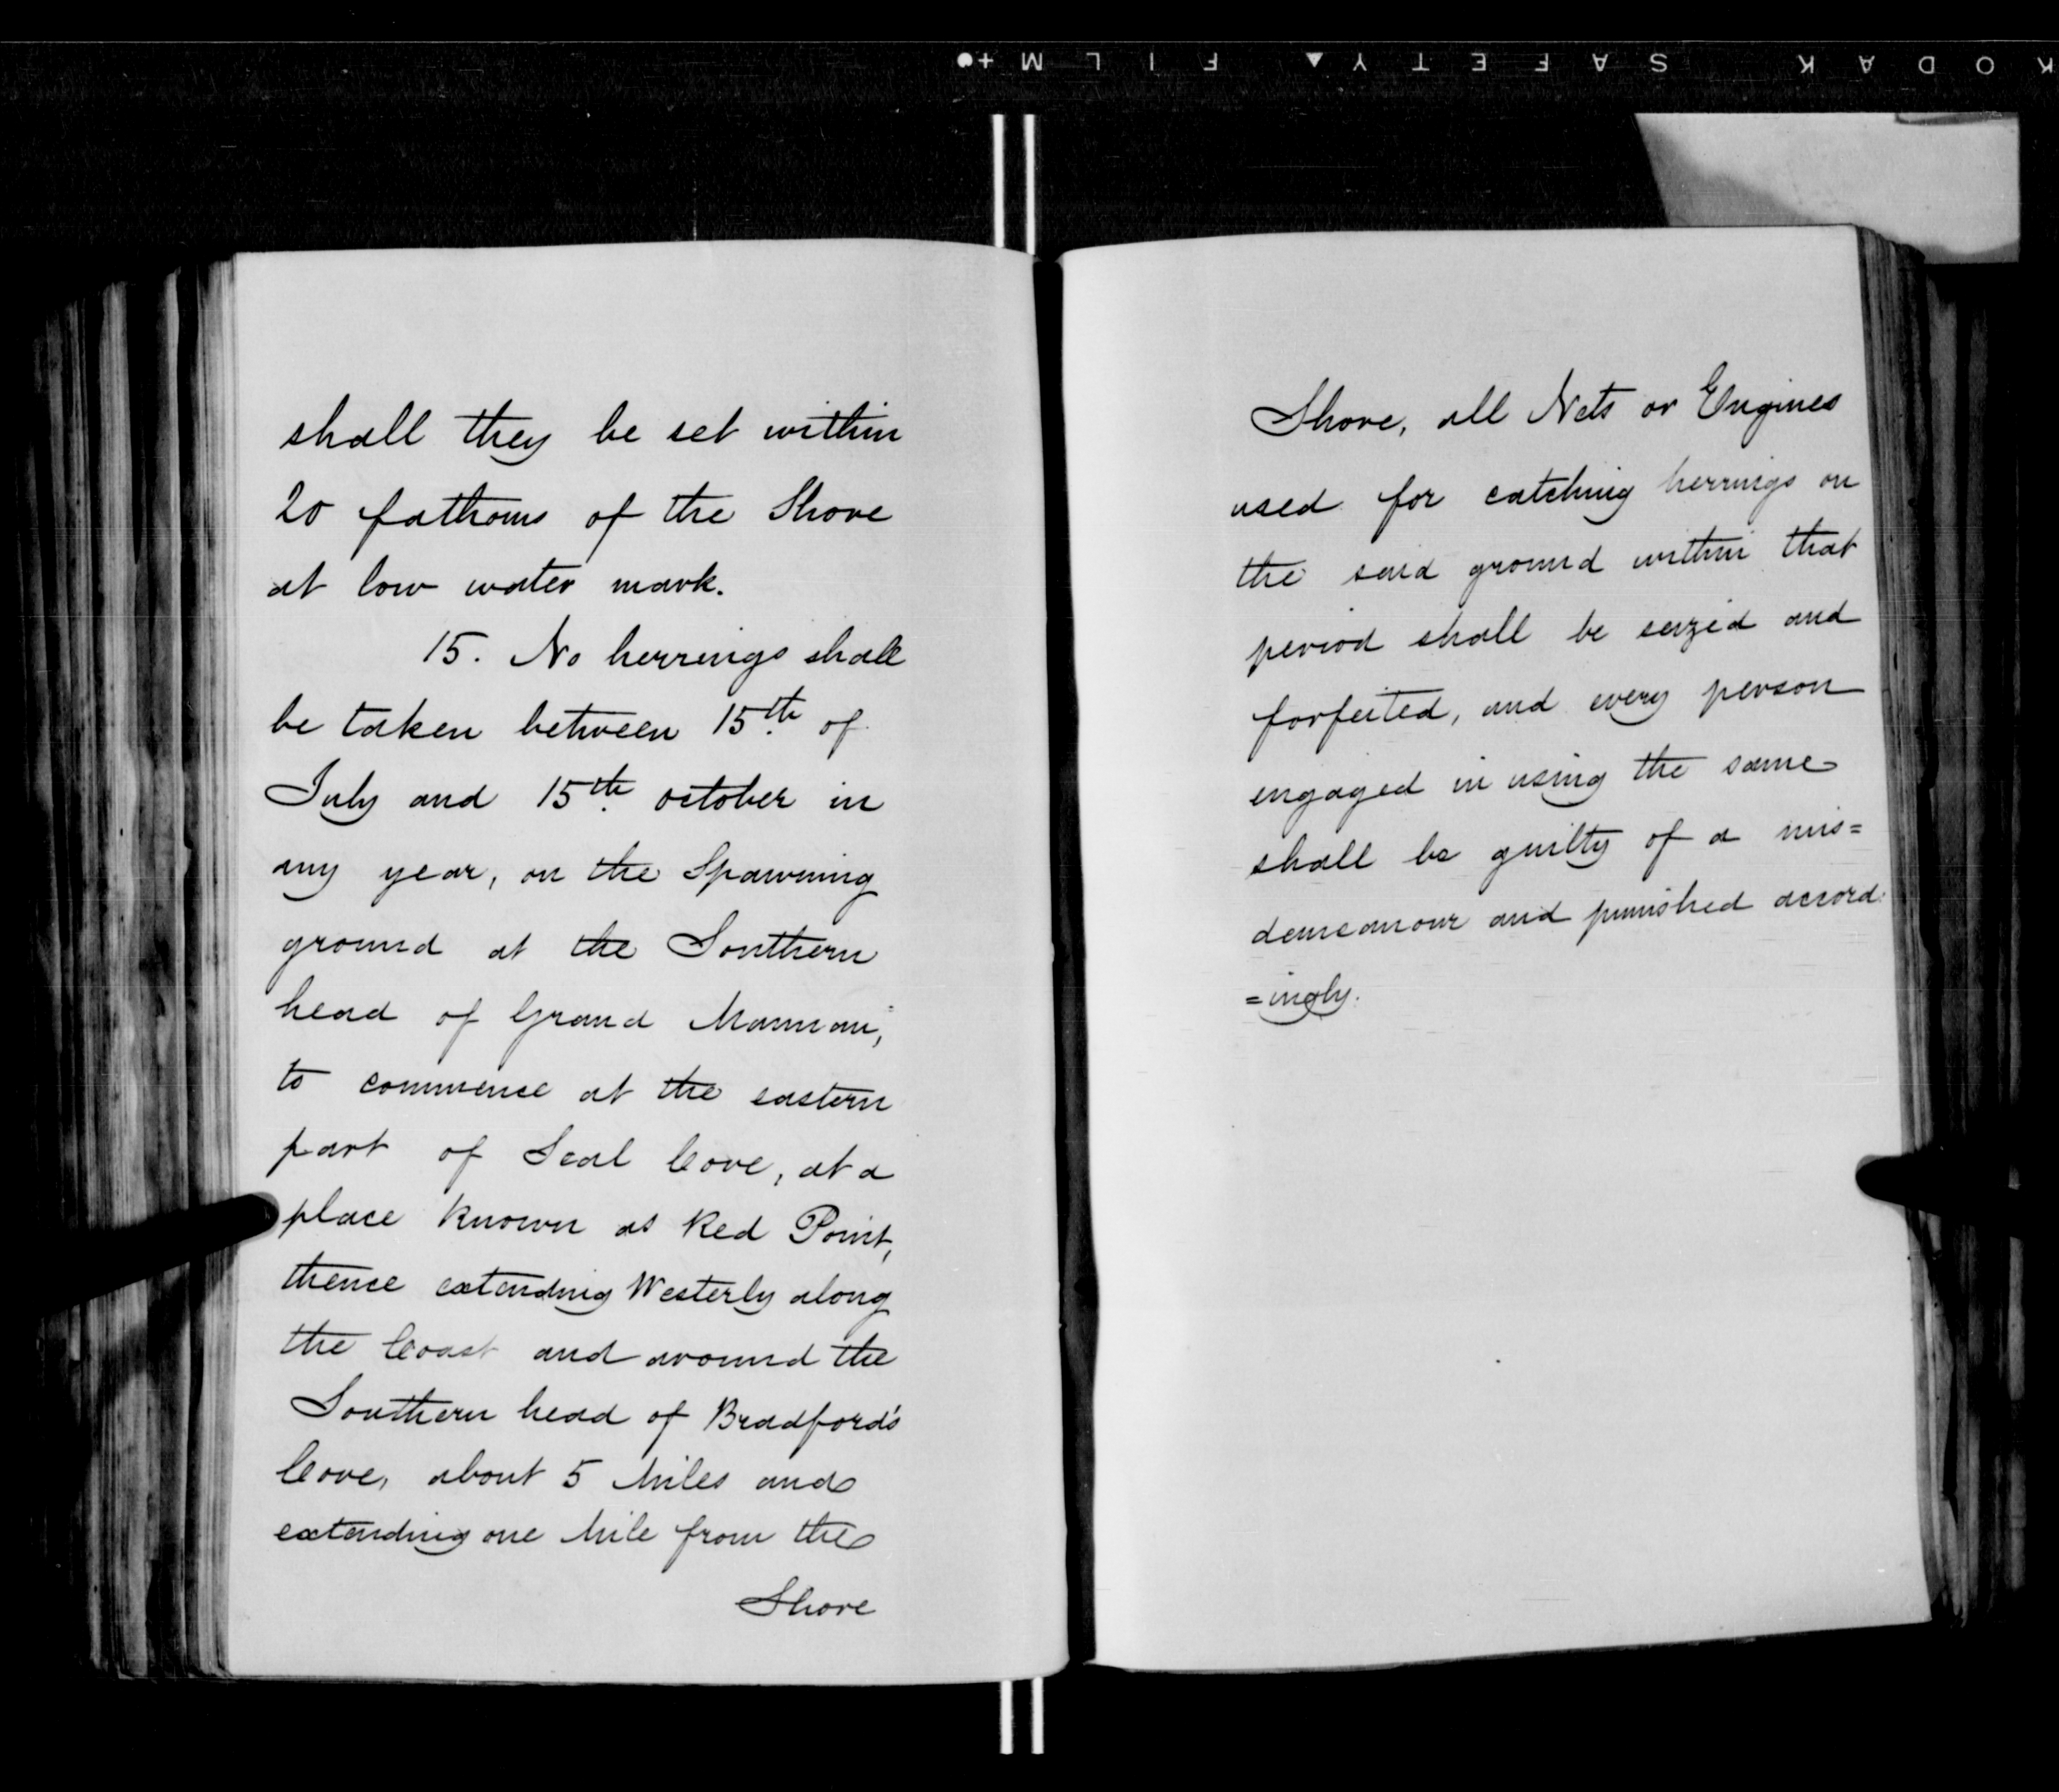 KODAK SAFETY FILM
shall they be set within
20 fathoms of the Shore
at low water mark.
15. No herrings shall
be taken between 15th of
July and 15th october in
any year, on the Spawning
ground at the Southern
head of Grand Mannan,
to commence at the eastern
part of Seal Cove, at a
place known as Red Point,
thence extending Westerly along
the Coast and around the
Southern head of Bradford's
Cove, about 5 Miles and
extending one Mile from the
Shore
Shore, all Nets or Engines
used for catching herrings on
the said ground within that
period shall be seized and
forfeited, and every person
engaged in using the same
shall be guilty of a mis=
demeanour and punished accord:
=ingly.